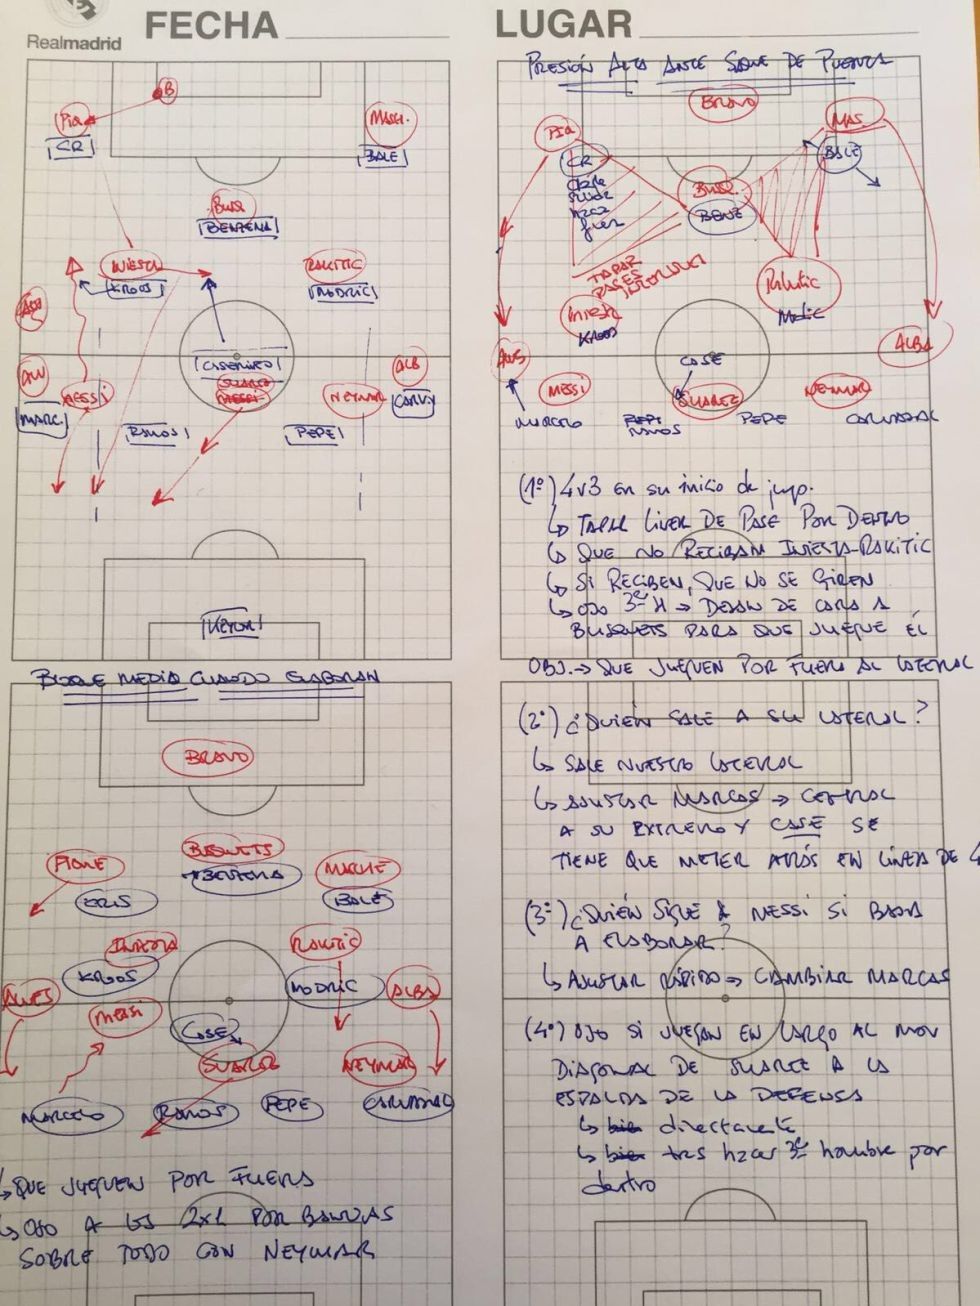 Realmadrid
FECHA
LUGAR
B
PIQ
CR
MASCH.
BALE
BUSQ
BENZEMA
INIESTA
KROOS
RAKITIC
MODRIC
CASEMIRO
SUAREZ
MESSI
MESSI
NEYMAR
ALB
CARV
MARC
RAMOS
PEPE
KEYLOR
PRESIÓN ALTA ANTE SAQUE DE PUERTA
BRAVO
PIQ
MAS.
CR
BALE
BUSQ.
BENZ
TAPAR
PASES
INTERIORES
INIESTA
KROOS
Rakitic
Modric
ALVES
CASE
ALBA
MESSI
SUAREZ
NEYMAR
MARCELO
RAMOS
PEPE
CARVAJAL
(1º) 4v3 en su inicio de jug.
↳ TAPAR LINEA DE PASE POR DENTRO
↳ QUE NO RECIBAN INIESTA-RAKITIC
↳ SI RECIBEN, QUE NO SE GIREN
↳ OJO 3er H → DEJAN DE CARA A
BUSQUETS PARA QUE JUEGUE ÉL
OBJ. → QUE JUEGUEN POR FUERA AL LATERAL
BLOQUE MEDIO CUANDO ELABORAN
BRAVO
PIQUE
BUSQUETS
BENZEMA
MASCHE
CRIS
BALE
INIESTA
KROOS
RAKITIC
MODRIC
ALVES
ALBA
MESSI
CASE
SUAREZ
NEYMAR
MARCELO
RAMOS
PEPE
CARVAJAL
↳ QUE JUEGUEN POR FUERA
↳ OJO A LOS 2x1 POR BANDAS
SOBRE TODO CON NEYMAR
(2º) ¿QUIÉN SALE A SU LATERAL?
↳ SALE NUESTRO LATERAL
↳ AJUSTAR MARCAS → CENTRAL
A SU EXTREMO Y CASE SE
TIENE QUE METER ATRÁS EN LÍNEA DE 4
(3º) ¿QUIÉN SIGUE A MESSI SI BAJA
A ELABORAR?
↳ AJUSTAR RÁPIDO → CAMBIAR MARCAS
(4º) OJO SI JUEGAN EN LARGO AL MOV
DIAGONAL DE SUAREZ A LA
ESPALDA DE LA DEFENSA
↳ bien directamente
↳ bien tras hacer 3er hombre por
dentro